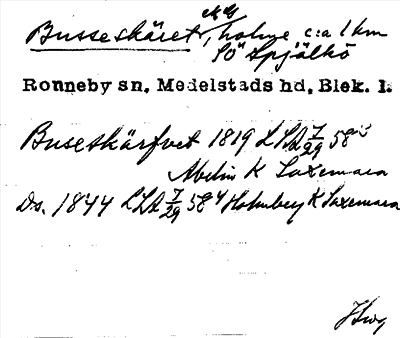 Busseskäret, holme c:a 1 km
SÖ Spjälkö
Ronneby sn, Medelstads hd, Blek. l.
Buseskärfvet 1819 LSA 7/29 58
Abelin K Saxemara
Ds. 1844 LSA 7/29 58 Holmberg K Saxemara